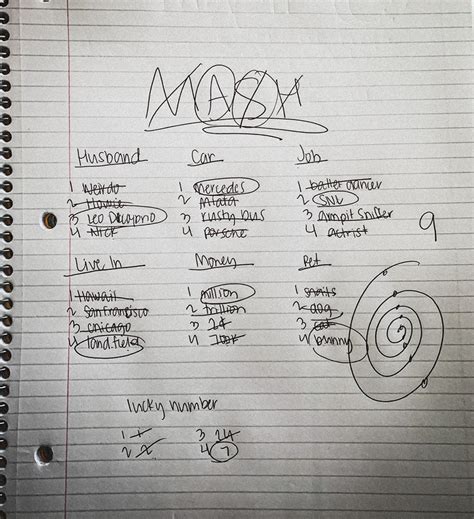 MASH
Husband Car Job
1 Weirdo 1 Mercedes 1 ballet dancer
2 Howie 2 Miata 2 SNL
3 Leo Dicaprio 3 rusty bus 3 Armpit Sniffer
4 Nick 4 porsche 4 actrist
9
Live In Money Pet
1 Hawaii 1 million 1 snails
2 San francisco 2 trillion 2 dog
3 chicago 3 2¢ 3 cat
4 landfield 4 4 bunny
lucky number
1 1 3 24
2 2 4 7